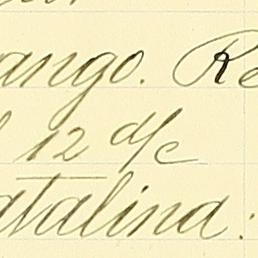 ango. Re
12 d/c
atalina: